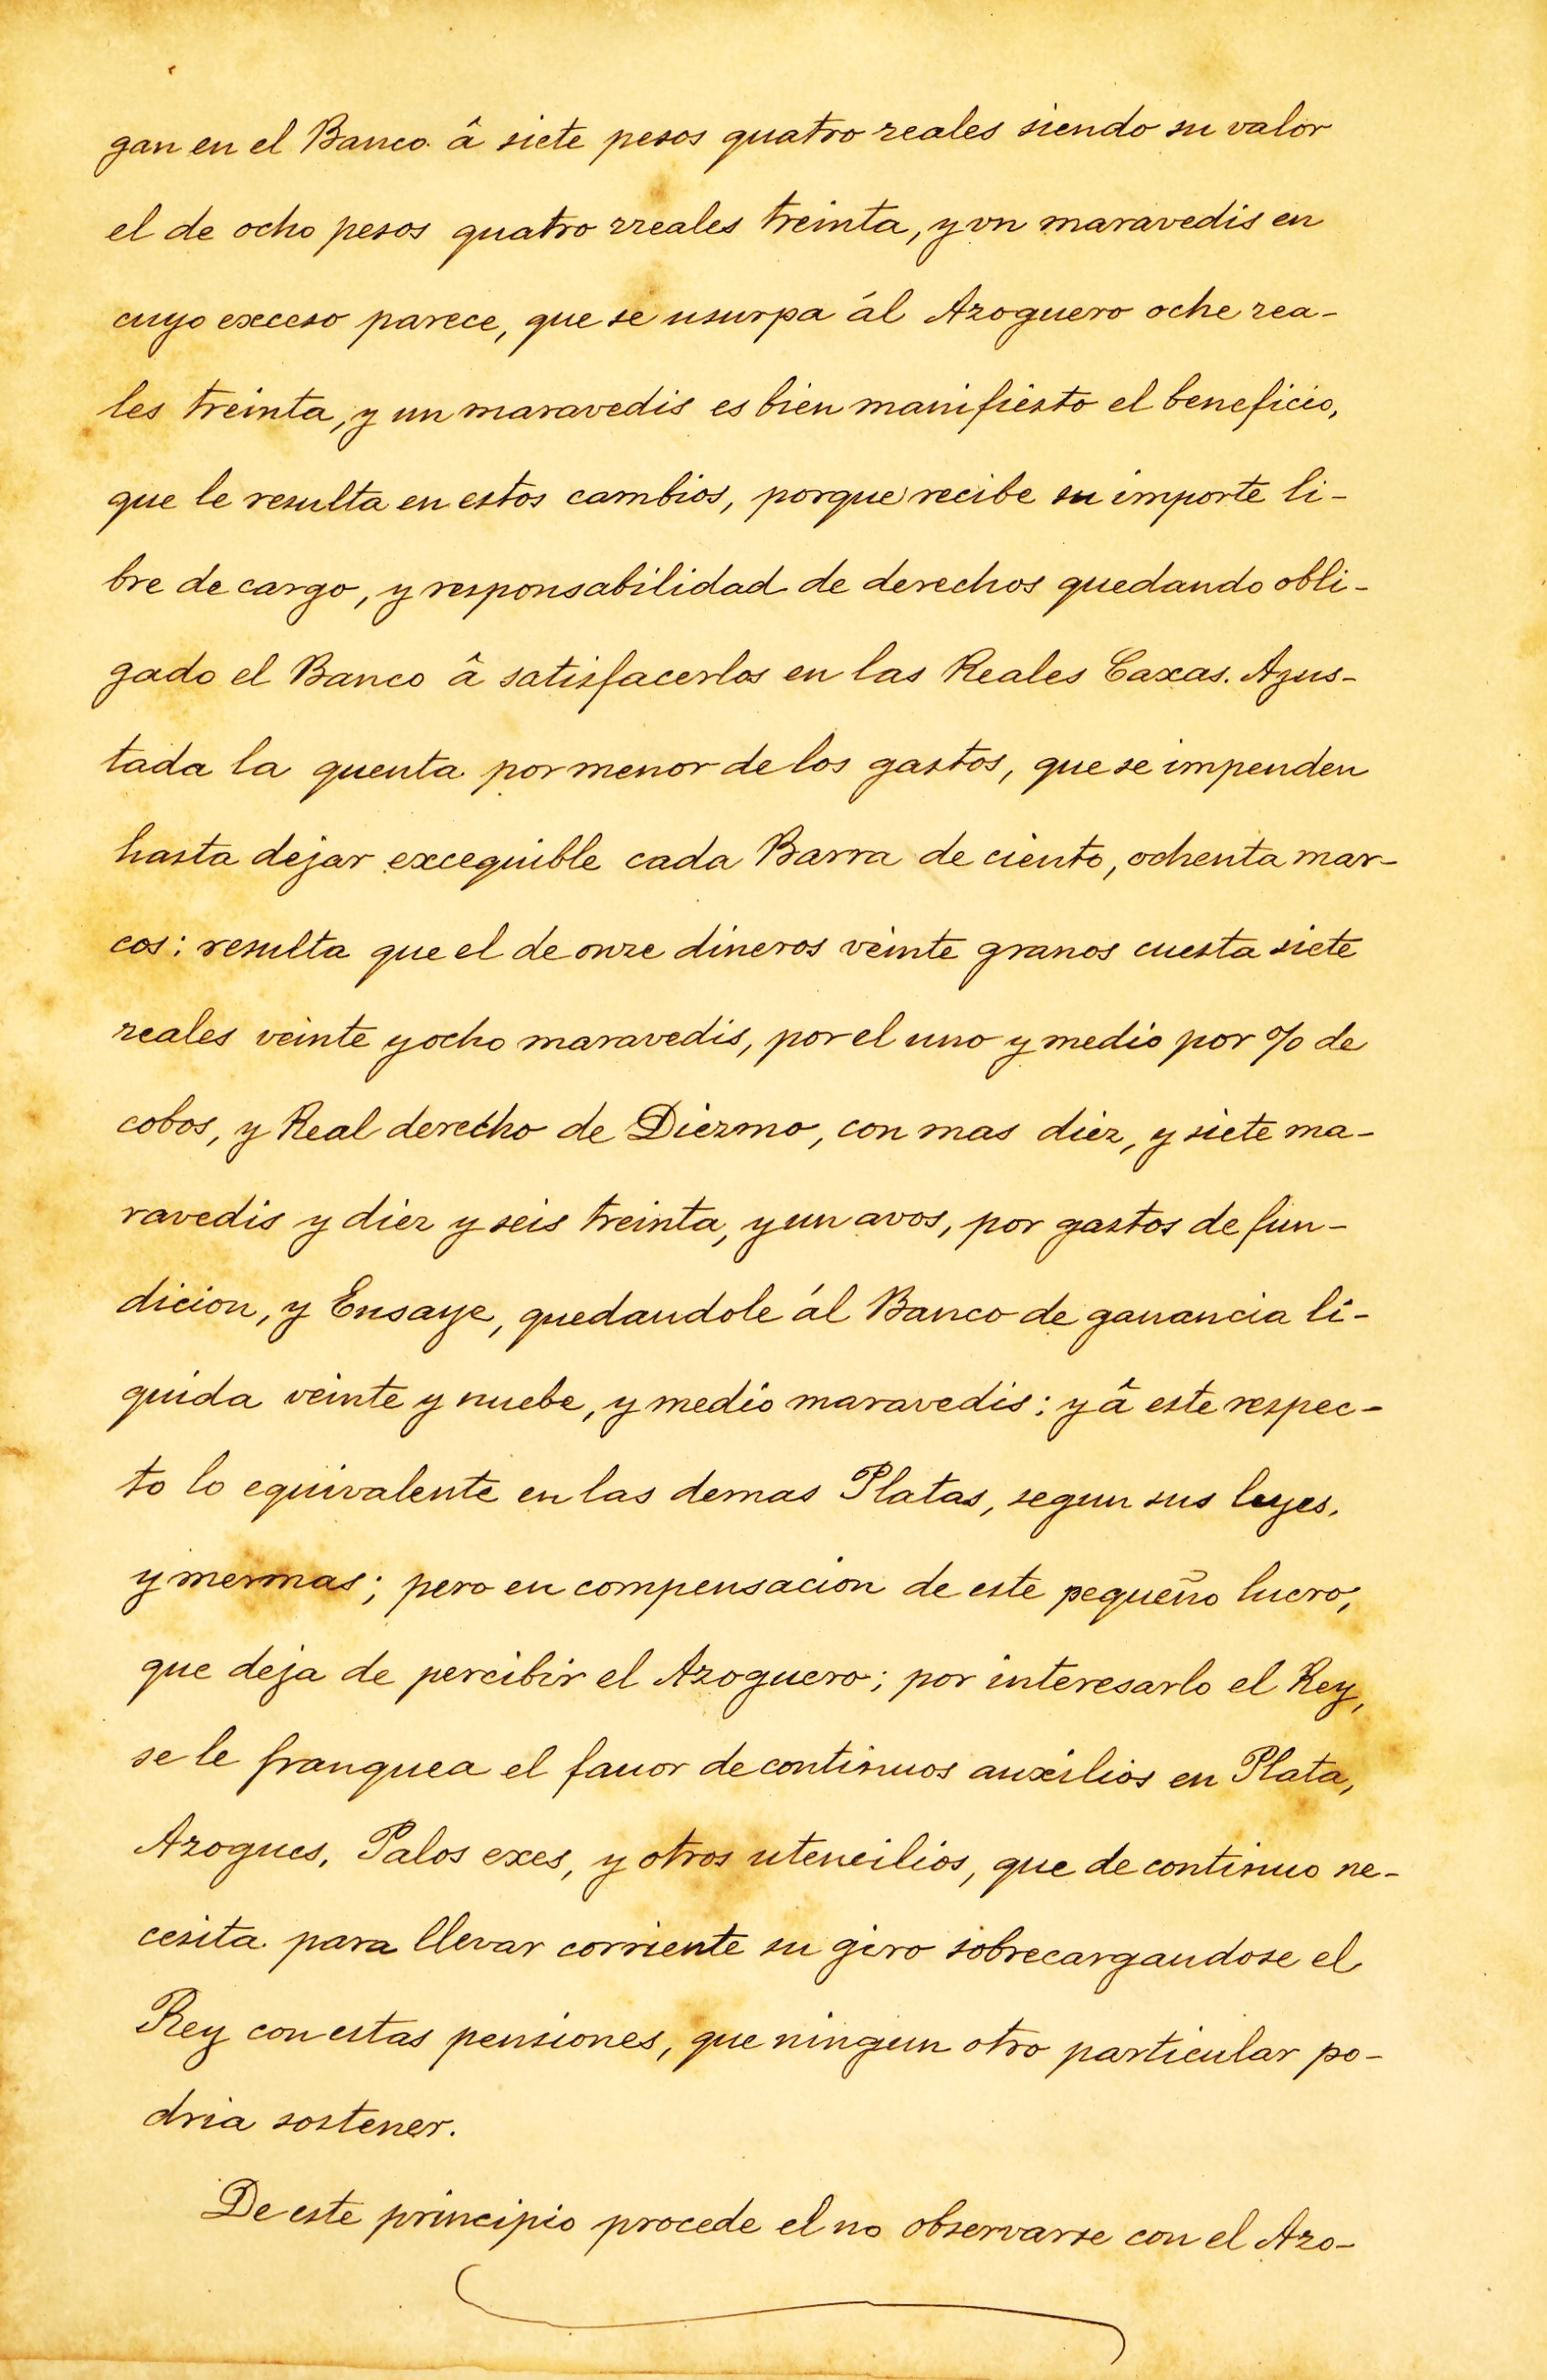 gan en el Banco â siete pesos quatro reales siendo su valor
el de ocho pesos quatro rreales treinta, y vn maravedis en
cuyo exceso parece, que se usurpa ál Azoguero oche rea-
les treinta, y un maravedis es bien manifiesto el beneficio,
que le resulta en estos cambios, porque recibe su importe li-
bre de cargo, y responsabilidad de derechos quedando obli-
gado el Banco â satisfacerlos en las Reales Caxas. Azus-
tada la quenta por menor de los gastos, que se impenden
hasta dejar excequible cada Barra de ciento, ochenta mar-
cos: resulta que el de onze dineros veinte granos cuesta siete
reales veinte y ocho maravedis, por el uno y medio por % de
cobos, y Real derecho de Diezmo, con mas diez, y siete ma-
ravedis y diez y seis treinta, y un avos, por gastos de fun-
dicion, y Ensaye, quedandole ál Banco de ganancia li-
quida veinte y nuebe, y medio maravedis: y â este respec-
to lo equivalente en las demas Platas, segun sus leyes,
y mermas; pero en compensacion de este pequeño lucro,
que deja de percibir el Azoguero; por interesarlo el Rey,
se le franquea el fauor de continuos auxilios en Plata,
Azogues, Palos exes, y otros utencilios, que de continuo ne-
cesita para llevar corriente su giro sobrecargandose el
Rey con estas pensiones, que ningun otro particular po-
dria sostener.
De este principio procede el no observarse con el Azo-